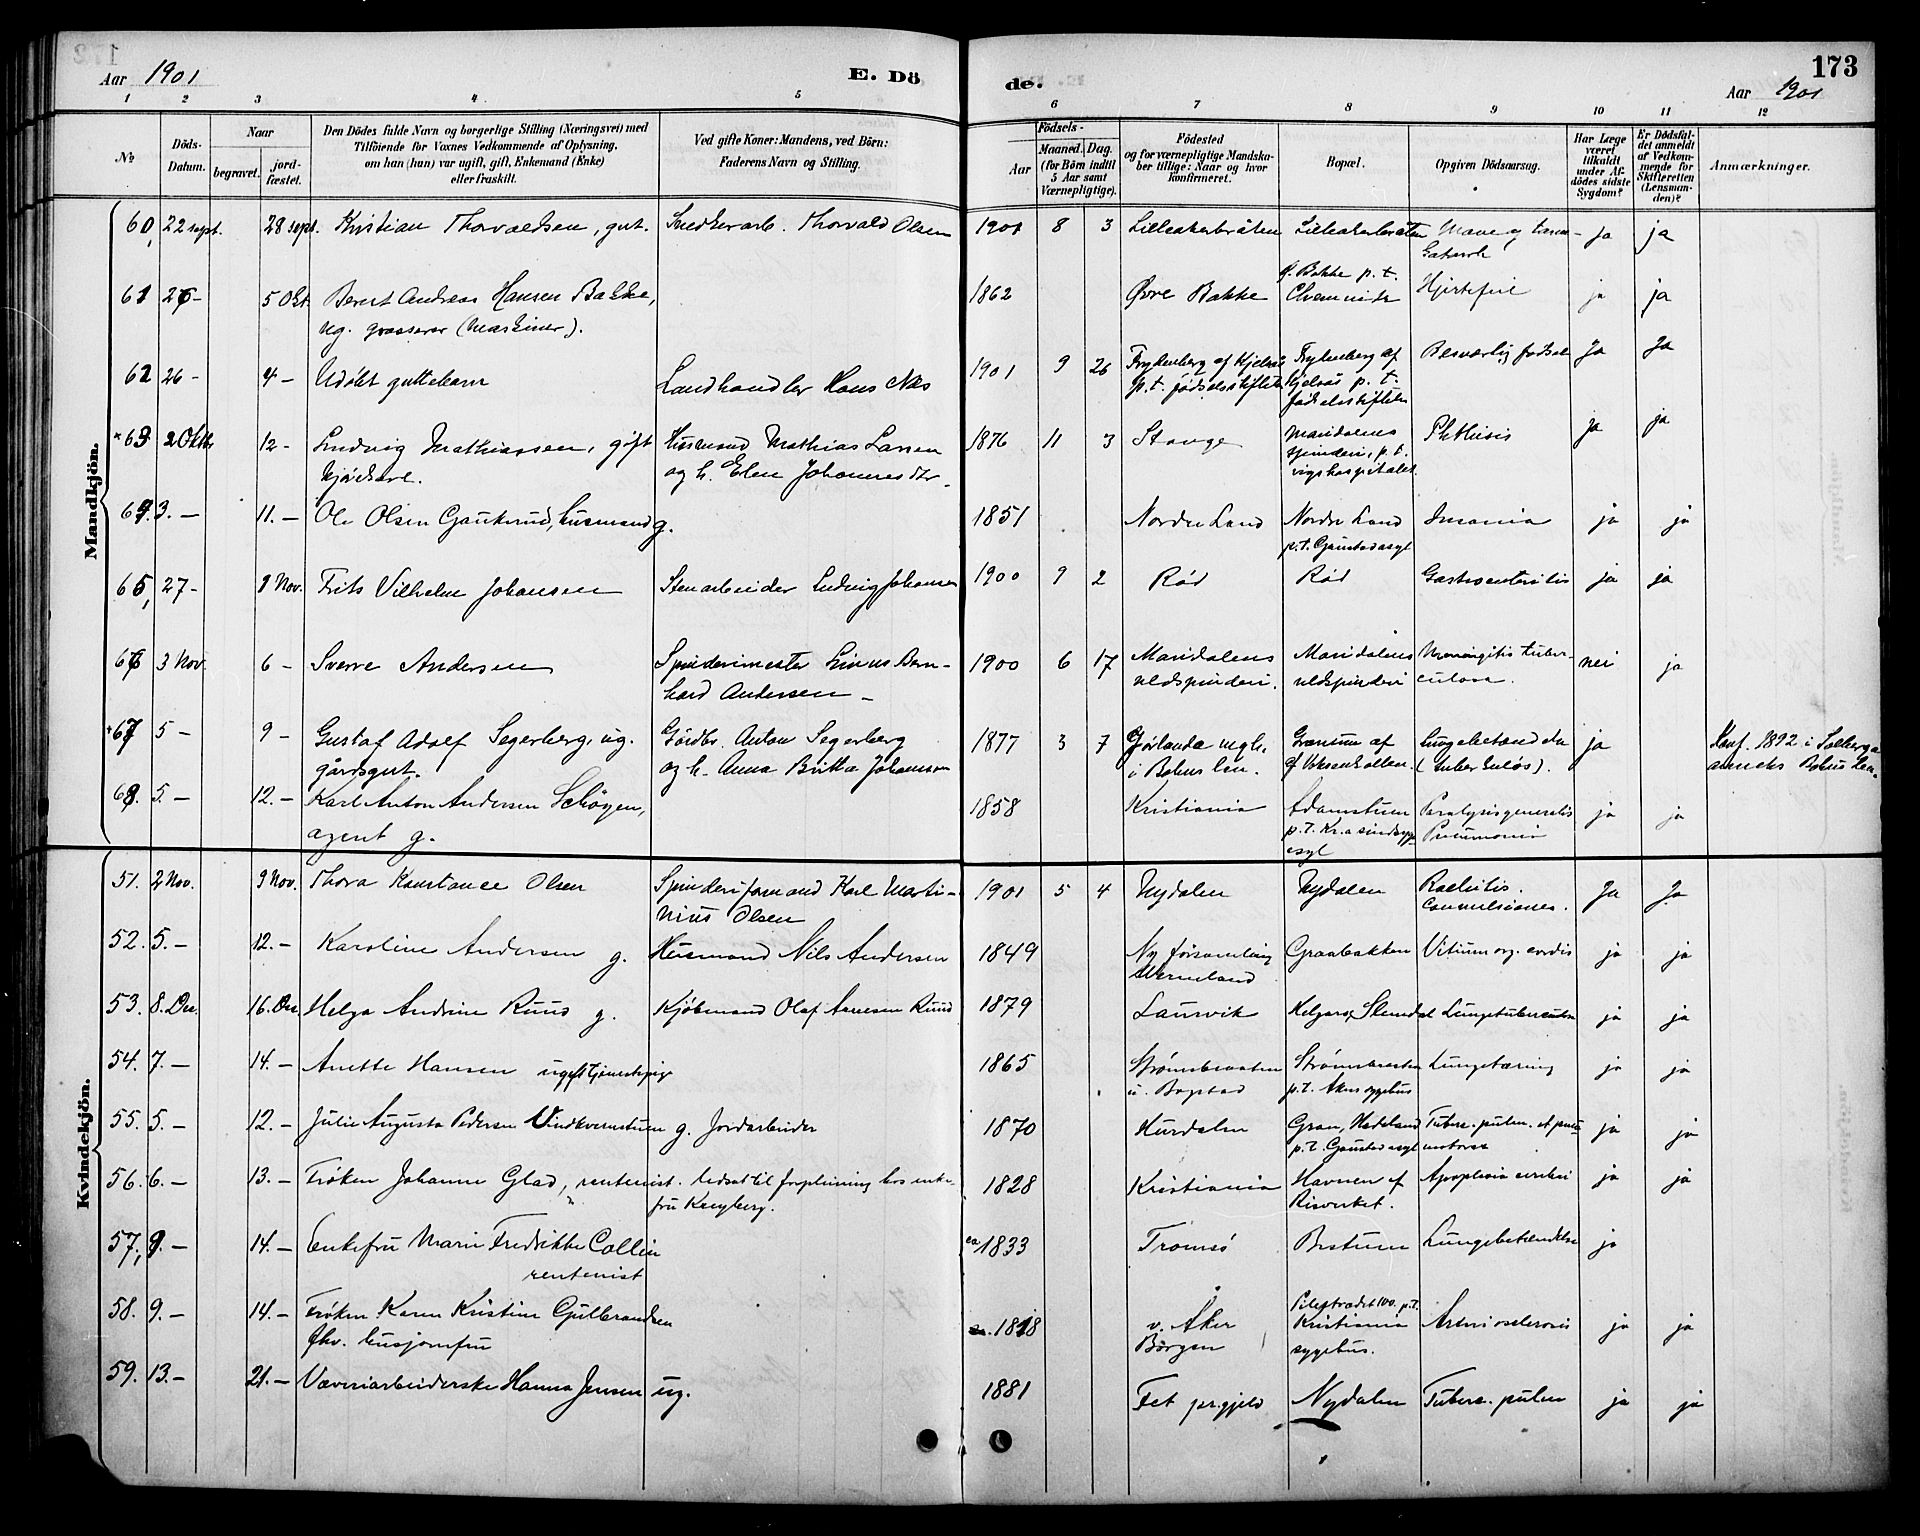 Aar 1901
E. Dö
de.
173
Aar 1901
1 2 3 4 5 6 7 8 9 10 11 12
№
Döds-Datum.
Naar
begravet.
jord-fæstet.
Den Dödes fulde Navn og borgerlige Stilling (Næringsvei) med
Tilföiende for Voxnes Vedkommende af Oplysning,
om han (hun) var ugift, gift, Enkemand (Enke)
eller fraskilt.
Ved gifte Koner: Mandens, ved Börn:
Faderens Navn og Stilling.
Födsels-
Aar
Maaned. Dag.
(for Börn indtil
5 Aar samt
Værnepligtige).
Födested
og for værnepligtige Mandska-
ber tillige: Naar og hvor
konfirmeret.
Bopæl.
Opgiven Dödsaarsag.
Har Læge
været
tilkaldt
under Af-
dödes sidste
Sygdom?
Er Dödsfal-
det anmeldt
af Vedkom-
mende for
Skifteretten
(Lensman-
den)?
Anmærkninger.
Mandkjön.
60, 22 sept. 28 sept. Kristian Thorvaldsen, gut. Snedkerarb. Thorvald Olsen 1901 8 3 Lilleakerbråten Lilleakerbråten Mave og tarm- ja ja
Katarrh
61 26 - 5 Okt. Bernt Andreas Hansen Bakke, 1862 Øvre Bakke Ø. Bakke p. t. Hjertefeil ja ja
ug. grosserer (maskiner). Chemnitz
62 26 - 4 - Udöbt guttebarn Landhandler Hans Næs 1901 9 26 Frydenberg af Kjelsås Frydenberg af Besværlig födsel Ja Ja
p. t. födselsstiftelsen Kjelsås p. t.
födselsstiftelsen
× 63 2 Oktbr 12 - Ludvig Mathiassen, gift Husmand Mathias Larsen 1876 11 3 Stange Maridalens Phthisis ja ja
kjørekarl. og h. Elen Johannesdtr. spinderi, p. t.
rigshospitalet
64. 3. - 11. - Ole Olsen Gaukerud, husmand g. 1851 Nordre Land Nordre Land Insania ja ja
p. t. Gaustad asyl
65, 27 - 1 Nov. Frits Vilhelm Johansen Stenarbeider Ludvig Johansen 1900 9 2 Rød Rød Gastroenteritis ja ja
66 3 Nov. 6 - Sverre Andersen Spinderimester Linus Bern- 1900 6 17 Maridalens Maridalens Meningitis tuber- nei ja
hard Andersen - uldspinderi. uldspinderi culosa.
67 5 - 9 - Gustaf Adolf Segerberg, ug. Gårdbr. Anton Segerberg 1877 3 7 Gjörlanda mgh. Grønum af Lungebetændelse ja Konf. 1892 i Solberga
gårdsgut. og h. Anna Britta Johanson i Bohus len. Voksenkollen. (tuberkuløs). anneks Bohus len.
68. 5. - 12. - Karl Anton Andersen Schöyen, 1858 Kristiania Adamstuen Paralysis generalis ja ja
agent g. p. t. Kr.a sindssyge Pneumonia
asyl
Kvindekjön.
51. 2 Nov. 9 Nov. Thora Konstance Olsen Spinderiformand Karl Marti- 1901 5 4 Nydalen Nydalen Rachitis. Ja Ja
nius Olsen Convulsiones.
52. 5. - 12. - Karoline Andersen g. Husmand Nils Andersen 1849 Ny församling Graabakken Vitium org. cordis ja ja
Vermeland
53. 8. Des. 16. Des. Helga Andrine Ruus g. Kjöbmand Olaf Arnesen Ruud 1879 Laurvik Helgarø, Slemdal Lungetuberculose ja ja
54. 7. - 14. - Anette Hansen ugift tjenestepige 1865 Strömsbraaten Strömsbraaten Lungetæring ja ja
u. Bogstad p. t. Akers sygehus
55. 5. - 12. - Julie Augusta Pedersen Vindkvernstuen g. Jordarbeider 1870 Hurdalen Gran, Hadeland Tuberc. pulm. et ja ja
p. t. Gaustad asyl
56. 6. - 13. - Fröken Johanne Glad, rentenist. Udsat til forpleining hos enke- 1828 Kristiania Havnen af Apoplexia cerebri ja ja
fru Kongberg. Risverket.
57, 9. - 14. - Enkefru Marie Fredrikke Collin ca 1833 Tromsö Bestum Lungebetændelse ja
rentenist
58. 9. - 14. - Fröken Karen Kristine Gulbrandsen 1818 v. Aker Pilestrædet 100. p. t. Arteriosclerosis ja ja
fhv. husjomfru Börgen Kristiania
sygehus.
59. 13. - 21. - Væveriarbeiderske Hanna Jensen ug. 1881 Fet prgjeld Nydalen Tuberc. pulm ja ja